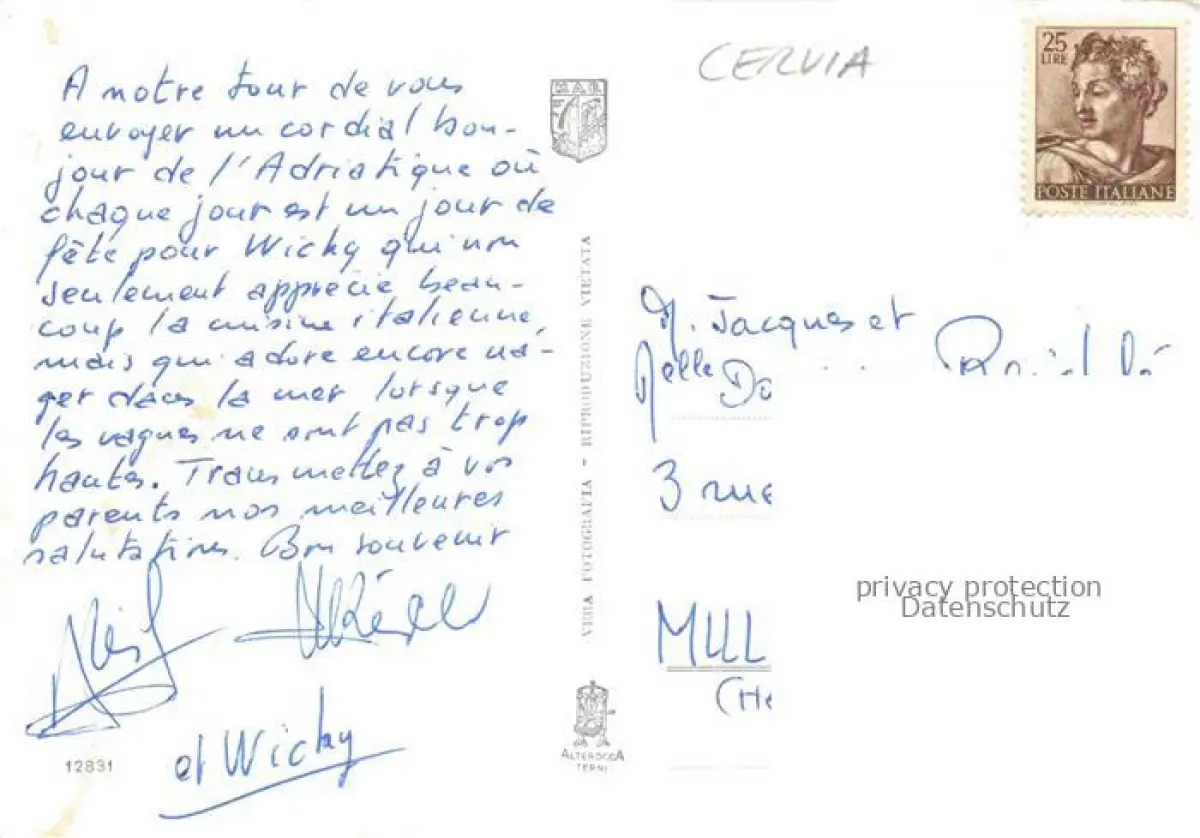 A notre tour de vous
envoyer un cordial bon-
jour de l'Adriatique où
chaque jour est un jour de
fête pour Wicky qui non
seulement apprécie beau-
coup la cuisine italienne,
mais qui adore encore na-
ger dans la mer lorsque
les vagues ne sont pas trop
hautes. Transmettez à vos
parents nos meilleures
salutations. Bon souvenir
et Wicky
12831
CERVIA
M.A.R.
VERA FOTOGRAFIA - RIPRODUZIONE VIETATA
ALTEROCCA
TERNI
25
LIRE
POSTE ITALIANE
M. Jacques et
Melle Do
3 rue
MUL
(Ha
privacy protection
Datenschutz